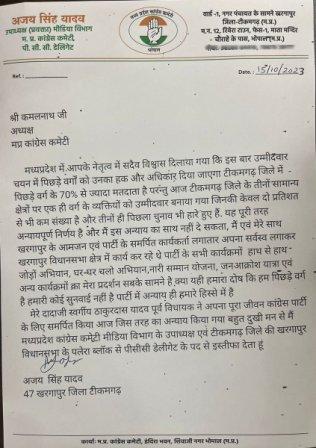 अजय सिंह यादव
उपाध्यक्ष (प्रवक्ता) मीडिया विभाग
म. प्र. कांग्रेस कमेटी,
पी. सी. सी. डेलिगेट
भोपाल
वार्ड -1, नगर पंचायत के सामने खरगापुर
जिला-टीकमगढ़ (म.प्र.)
म.न. 12, रिवेरा टाउन, फेस-1, माता मन्दिर
चौराहे के पास, भोपाल(म.प्र.)
Ref.:
Date.: 15/10/2023
श्री कमलनाथ जी
अध्यक्ष
मप्र कांग्रेस कमेटी
मध्यप्रदेश में आपके नेतृत्व में सदैव विश्वास दिलाया गया कि इस बार उम्मीदवार
चयन में पिछड़े वर्गों को उनका हक और अधिकार दिया जाएगा टीकमगढ़ जिले में
पिछड़े वर्ग के 70% से ज्यादा मतदाता है परन्तु आज टीकमगढ़ जिले के तीनों सामान्य
क्षेत्रों पर एक ही वर्ग के व्यक्तियों को उम्मीदवार बनाया गया जिनकी केवल दो प्रतिशत
से भी कम संख्या है और तीनों ही पिछला चुनाव भी हारे हुए हैं. यह पूरी तरह
अन्यायपूर्ण निर्णय है और मैं इस अन्याय का साथ नहीं दे सकता, मैं एवं मेरे साथ
खरगापुर के आमजन एवं पार्टी के समर्पित कार्यकर्ता लगातार अपना सर्वस्व लगाकर
खरगापुर विधानसभा क्षेत्र में कार्य कर रहे थे पार्टी के सभी कार्यक्रमों हाथ से हाथ-
जोड़ों अभियान, घर-घर चलो अभियान,नारी सम्मान योजना, जनआक्रोश यात्रा एवं
अन्य कार्यक्रमों का मेरा प्रदर्शन सबके सामने है.क्या यही हमारा दोष कि हम पिछड़े वर्ग
है हमारी कोई सुनवाई नहीं है पार्टी में अन्याय ही हमारे हिस्से में है
मेरे दादाजी स्वर्गीय ठाकुरदास यादव पूर्व विधायक ने अपना पूरा जीवन कांग्रेस पार्टी
के लिए समर्पित किया आज जिस तरह का अन्याय किया गया बहुत दुखी मन से मैं
मध्यप्रदेश कांग्रेस कमेटी मीडिया विभाग के उपाध्यक्ष एवं टीकमगढ़ जिले की खरगापुर
विधानसभा के पलेरा ब्लॉक से पीसीसी डेलीगेट के पद से इस्तीफा देता हूं
अजय सिंह यादव
47 खरगापुर जिला टीकमगढ़
कार्या- म.प्र. कांग्रेस कमेटी, इन्दिरा भवन, शिवाजी नगर भोपाल (म.प्र.)